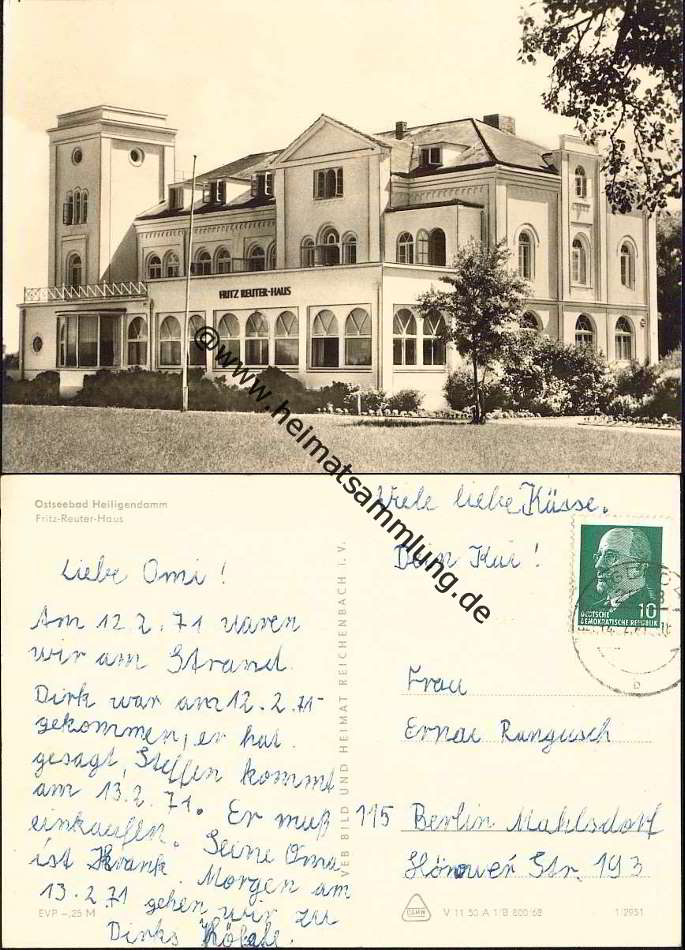 FRITZ REUTER-HAUS
@www.heimatsammlung.de
Ostseebad Heiligendamm
Fritz-Reuter-Haus
Liebe Omi!
Am 12.2.71 waren
wir am Strand.
Dirk war am 12.2.71
gekommen, er hat
gesagt, Steffen kommt
am 13.2.71. Er muß
einkaufen. Seine Oma
ist Krank. Morgen am
13.2.71 gehen wir zu
Dirks
EVP -,25 M
VEB BILD UND HEIMAT REICHENBACH I.V.
Viele liebe Küsse.
Dein Kai!
DEUTSCHE
DEMOKRATISCHE REPUBLIK
10
Frau
Ernae Rungusch
115 Berlin Mahlsdorf
Str. 193
V 11 50 A 1/B 800/68
1/2951